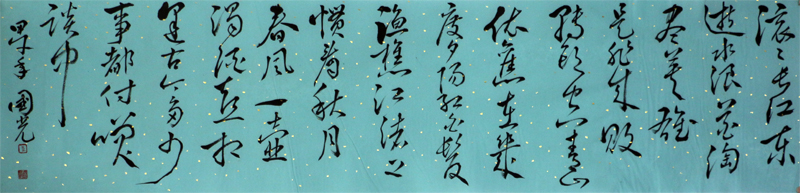 滚々长江东
逝水浪花淘
尽英雄
是非成败
转头空青山
依舊在幾
度夕阳红白髮
渔樵江渚上
惯看秋月
春风一壶
浊酒喜相
逢古今多少
事都付笑
谈中
國光